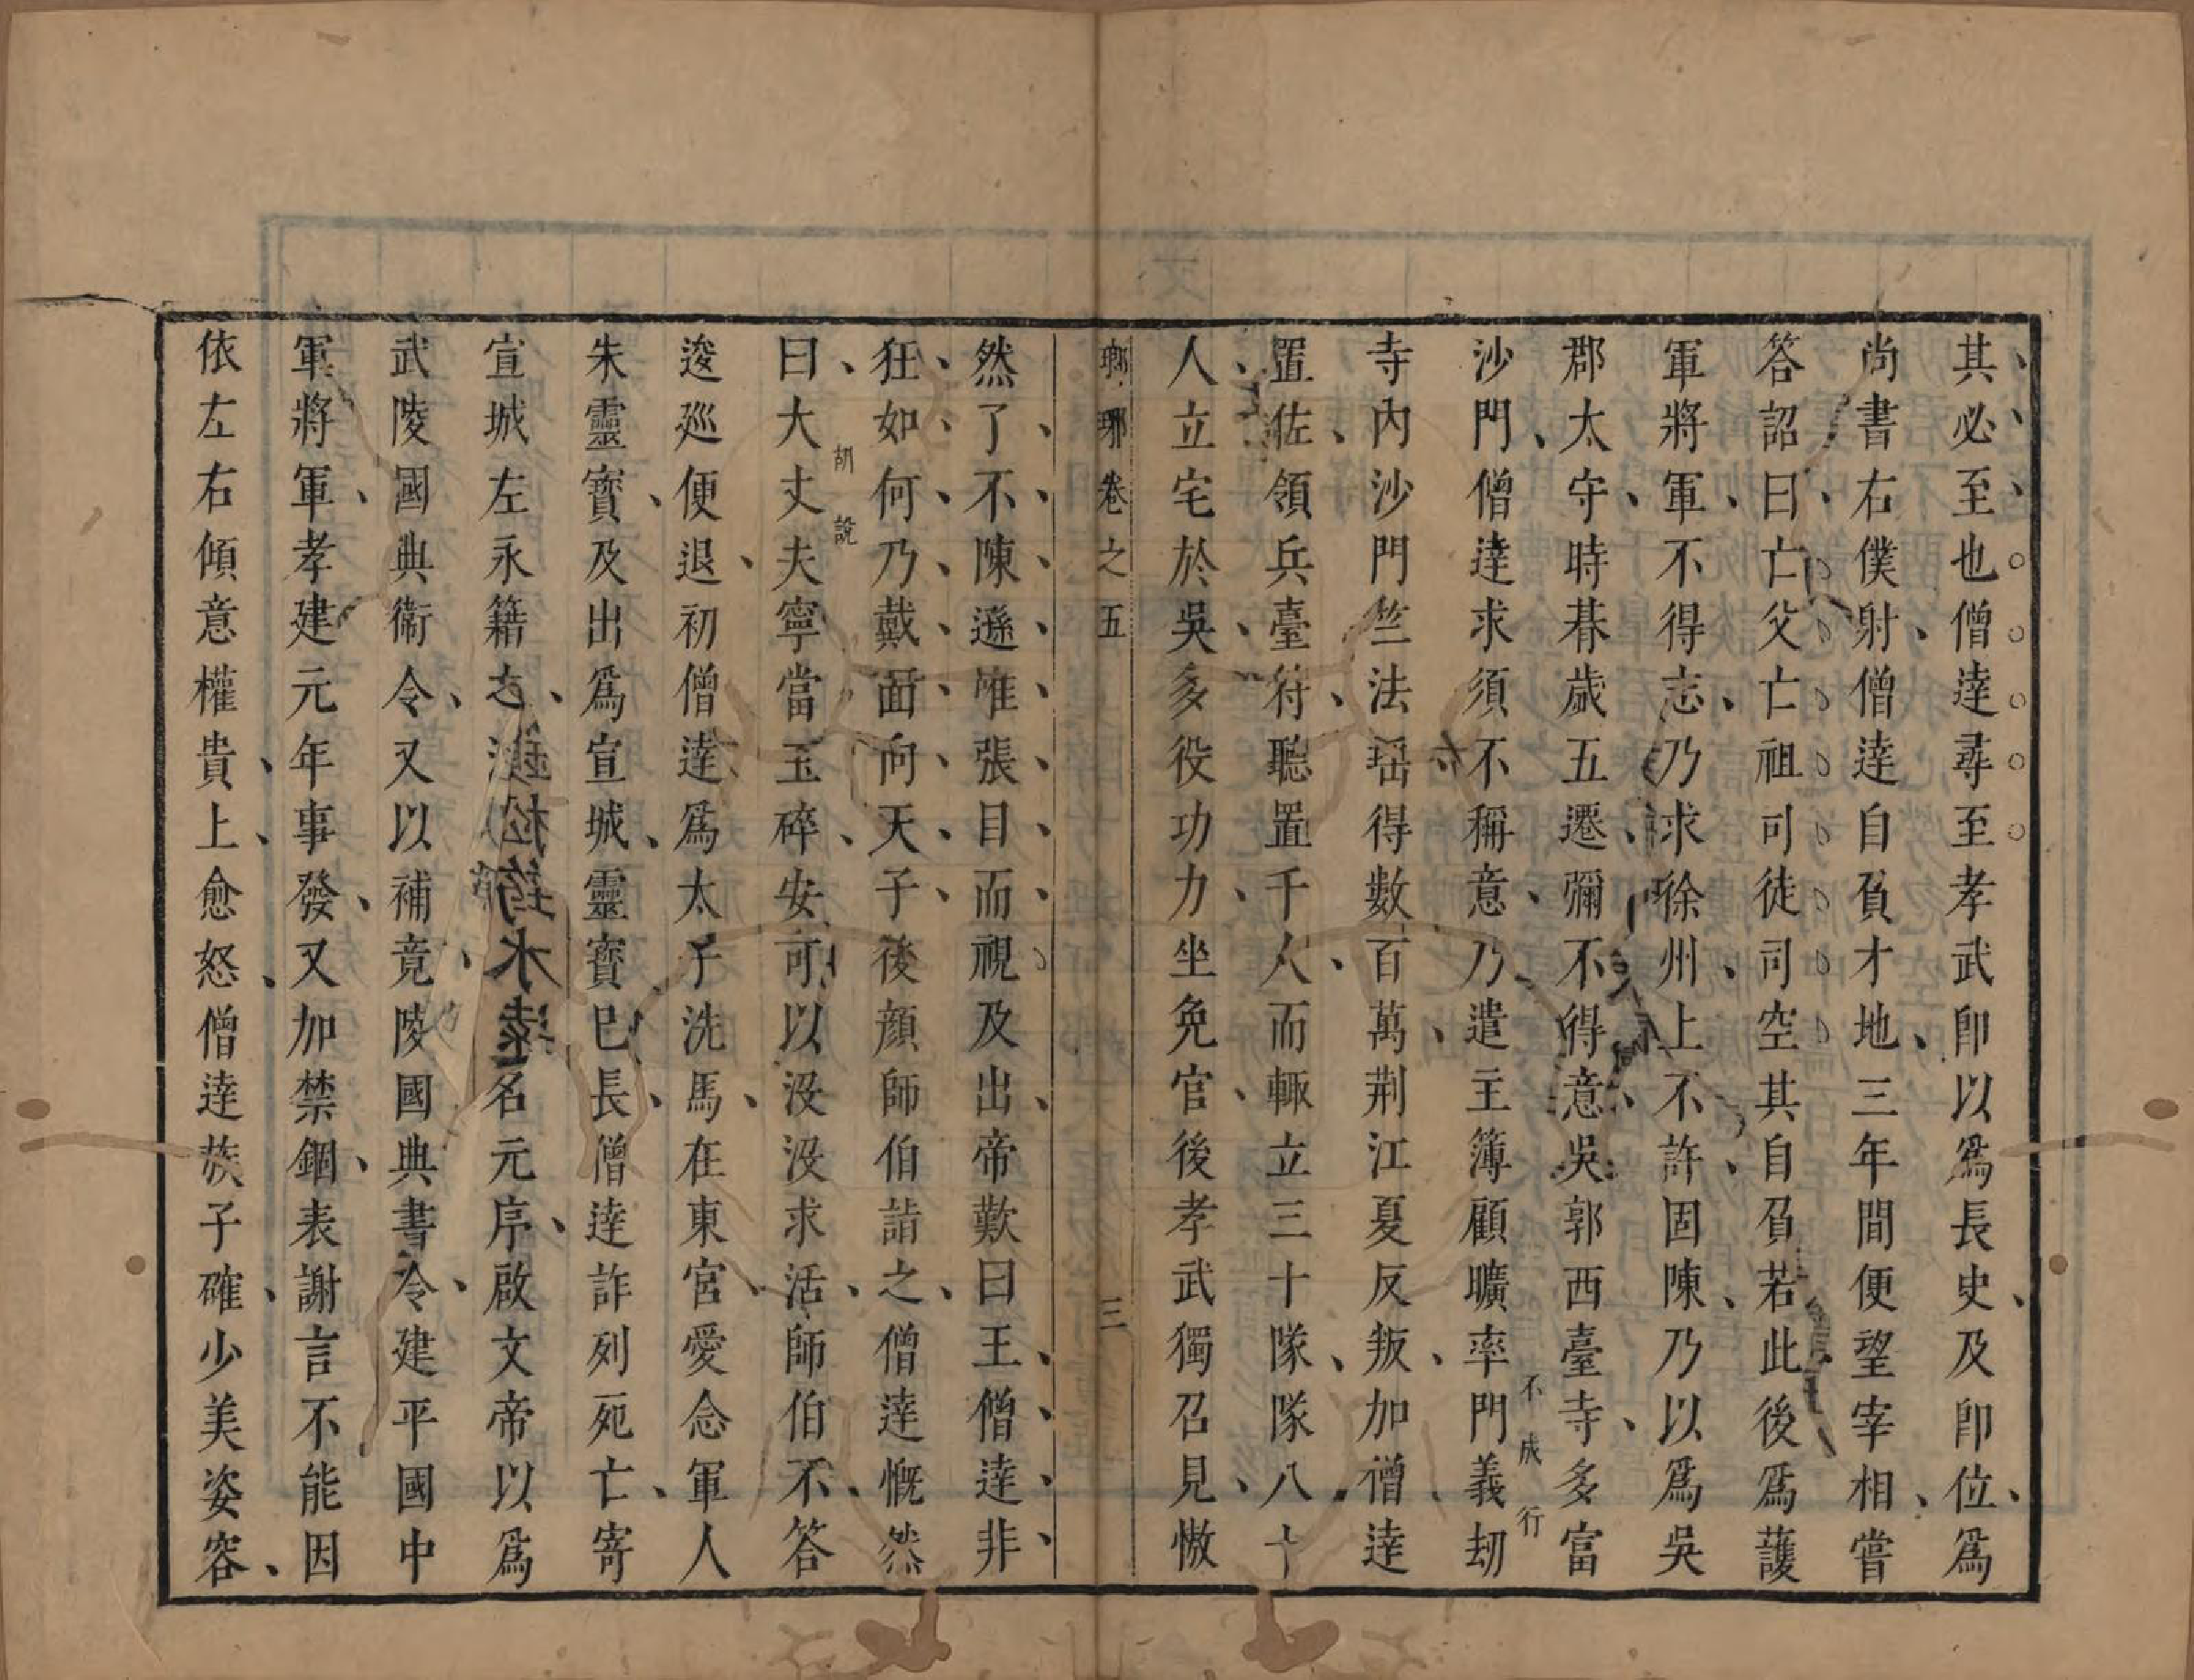 其必至也僧逹尋至孝武卽以爲長史及卽位爲
尚書右僕射僧逹自負才地三年間便望宰相嘗
答詔曰亡父亡祖司徒司空其自負若此後爲護
軍將軍不得志乃求徐州上不許固陳乃以爲吳
郡太守時朞歲五遷彌不得意吳郭西臺寺多富
沙門僧逹求須不稱意乃遣主簿顧曠率門義刼
不成行
寺內沙門竺法瑶得數百萬荆江夏反叛加僧逹
置佐領兵臺符聽置千人而輙立三十隊隊八十
人立宅於吳多役功力坐免官後孝武獨召見慠
瑯琊卷之五
三
然了不陳遜惟張目而視及出帝歎曰王僧逹非
狂如何乃戴面向天子後顔師伯詣之僧逹慨然
胡說
曰大丈夫寧當玉碎安可以没没求活師伯不答
逡廵便退初僧逹爲太子洗馬在東宮愛念軍人
朱靈寳及出爲宣城靈寳已長僧逹詐列死亡寄
宣城左永籍名元序啟文帝以爲
武陵國典衞令又以補竟陵國典書令建平國中
軍將軍孝建元年事發又加禁錮表謝言不能因
依左右傾意權貴上愈怒僧逹族子確少美姿容